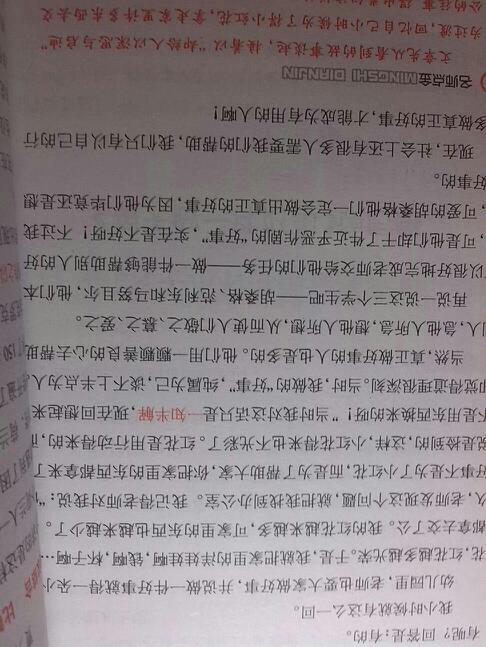 有呢？回答是：有的。
我小时候就有这么一回。
幼儿园里，老师也要大家做好事，并说做一件好事就得一朵小
花，红花越多越光荣。于是，我就把家里的洋娃娃啊，钱啊，杯子啊…
都拿去交了公。我的红花越来越多，可家里的东西也越来越少了。
久，老师发现这个问题，就把我找到办公室。我记得老师对我说：“
好事不是为了小红花，而是为了帮助大家，你把家里的东西都拿来了
说是捡到的，这样，小红花得来也不光彩了。红花是用行动得来的，
不是用东西换来的呀！”当时我对这话只是一知半解，现在回想起来
却觉得道理很深刻。当时，我做的“好事”，纯属为己，谈不上半点为人。
当然，真正做好事的人也是多的。他们用一颗颗善良的心去帮助
人，急他人所急，想他人所想，从而使人们敬之、慕之、爱之。
再说一说这三个学生吧——胡桑格、范利东和马努日尔，他们本
以很好地完成老师交给他们的任务——做一件能够帮助别人的好
，可是他们却干了件近乎恶作剧的“好事”，实在是不好呀！不过我
，可爱的胡桑格他们一定会做出真正的好事，因为他们毕竟还是想
好事的。
现在，社会上还有很多人需要我们的帮助，我们只有以自己的行
多做真正的好事，才能成为有用的人啊！
名师点金 MINGSHI DIANJIN
文章先从看到的故事谈起，接着以“却给人以深思与启迪”
为过渡，回忆自己小时候为了得小红花，拿走家里许多东西去交
公的往事，